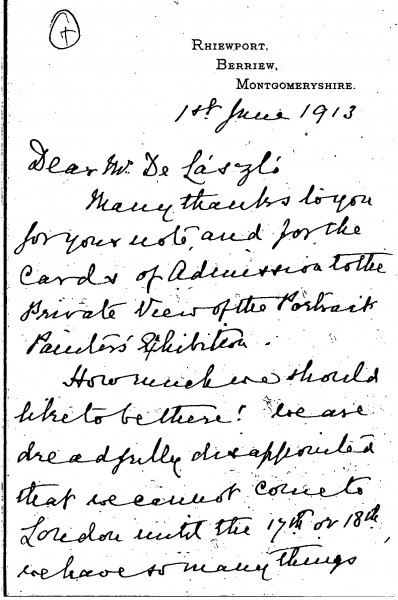 Rhiewport,
Berriew,
Montgomeryshire.
1st June 1913
Dear Mr. De László
Many thanks to you
for your note, and for the
Cards of Admission to the
Private View of the Portrait
Painters' Exhibition.
How much we should
like to be there! We are
dreadfully disappointed
that we cannot come to
London until the 17th or 18th,
we have so many things